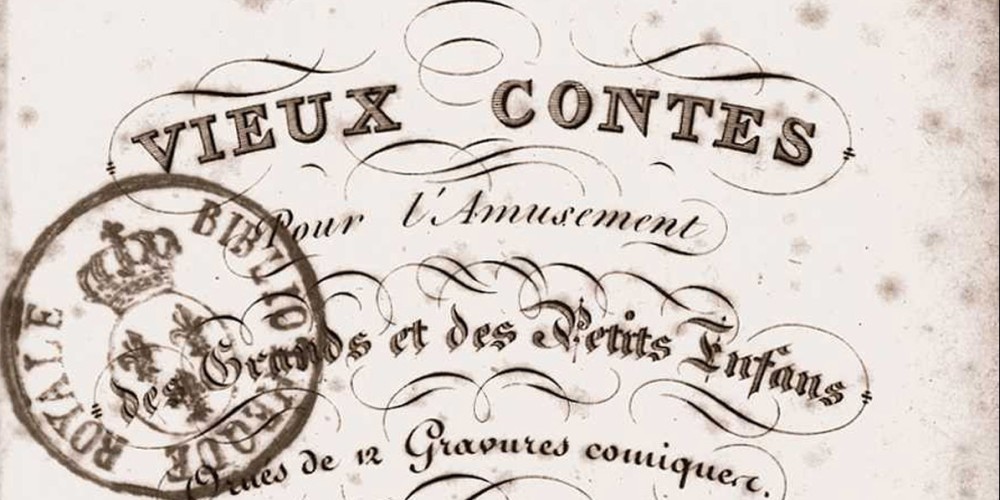 VIEUX CONTES
Pour l'Amusement
des Grands et des Petits Enfans
Ornés de 12 Gravures comiques.
BIBLIOTHEQUE ROYALE